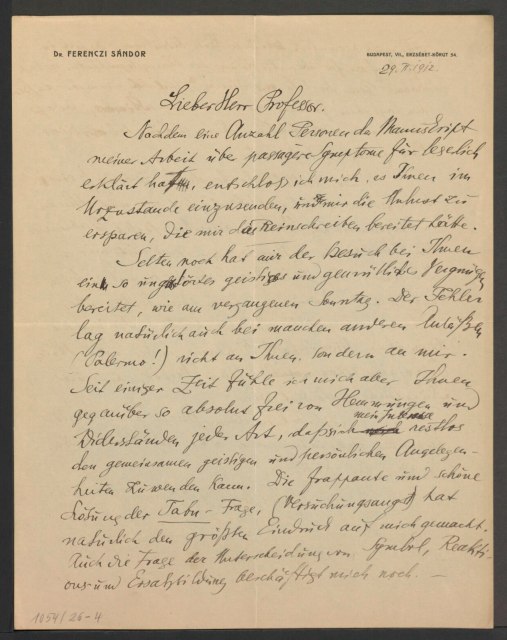 Dr. FERENCZI SÁNDOR
BUDAPEST, VII., ERZSÉBET-KÖRUT 54.
29. II. 1912.
Lieber Herr Professor.
Nachdem eine Anzahl Personen das Manuskript
meiner Arbeit über passagère Symptome für leserlich
erklärt hatten, entschloß ich mich, es Ihnen im
Urzustande einzusenden, und mir die Unlust zu
ersparen, die mir das Reinschreiben bereitet hätte.
Selten noch hat mir der Besuch bei Ihnen
ein so ungestörtes geistiges und gemütliches Vergnügen
bereitet, wie am vergangenen Sonntag. Der Fehler
lag natürlich auch bei manchen anderen Anläßen
(Palermo!) nicht an Ihnen, sondern an mir.
Seit einiger Zeit fühle ich mich aber Ihnen
gegenüber so absolut frei von Hemmungen und
Widerständen jeder Art, daß ich mein Interesse restlos
den gemeinsamen geistigen und persönlichen Angelegen-
heiten zuwenden kann. Die frappante und schöne
Lösung der Tabu-Frage, (Versuchungsangst) hat
natürlich den größten Eindruck auf mich gemacht.
Auch die Frage der Unterscheidung von Symbol, Reakti-
ons und Ersatzbildung beschäftigt mich noch. —
1054/26-4